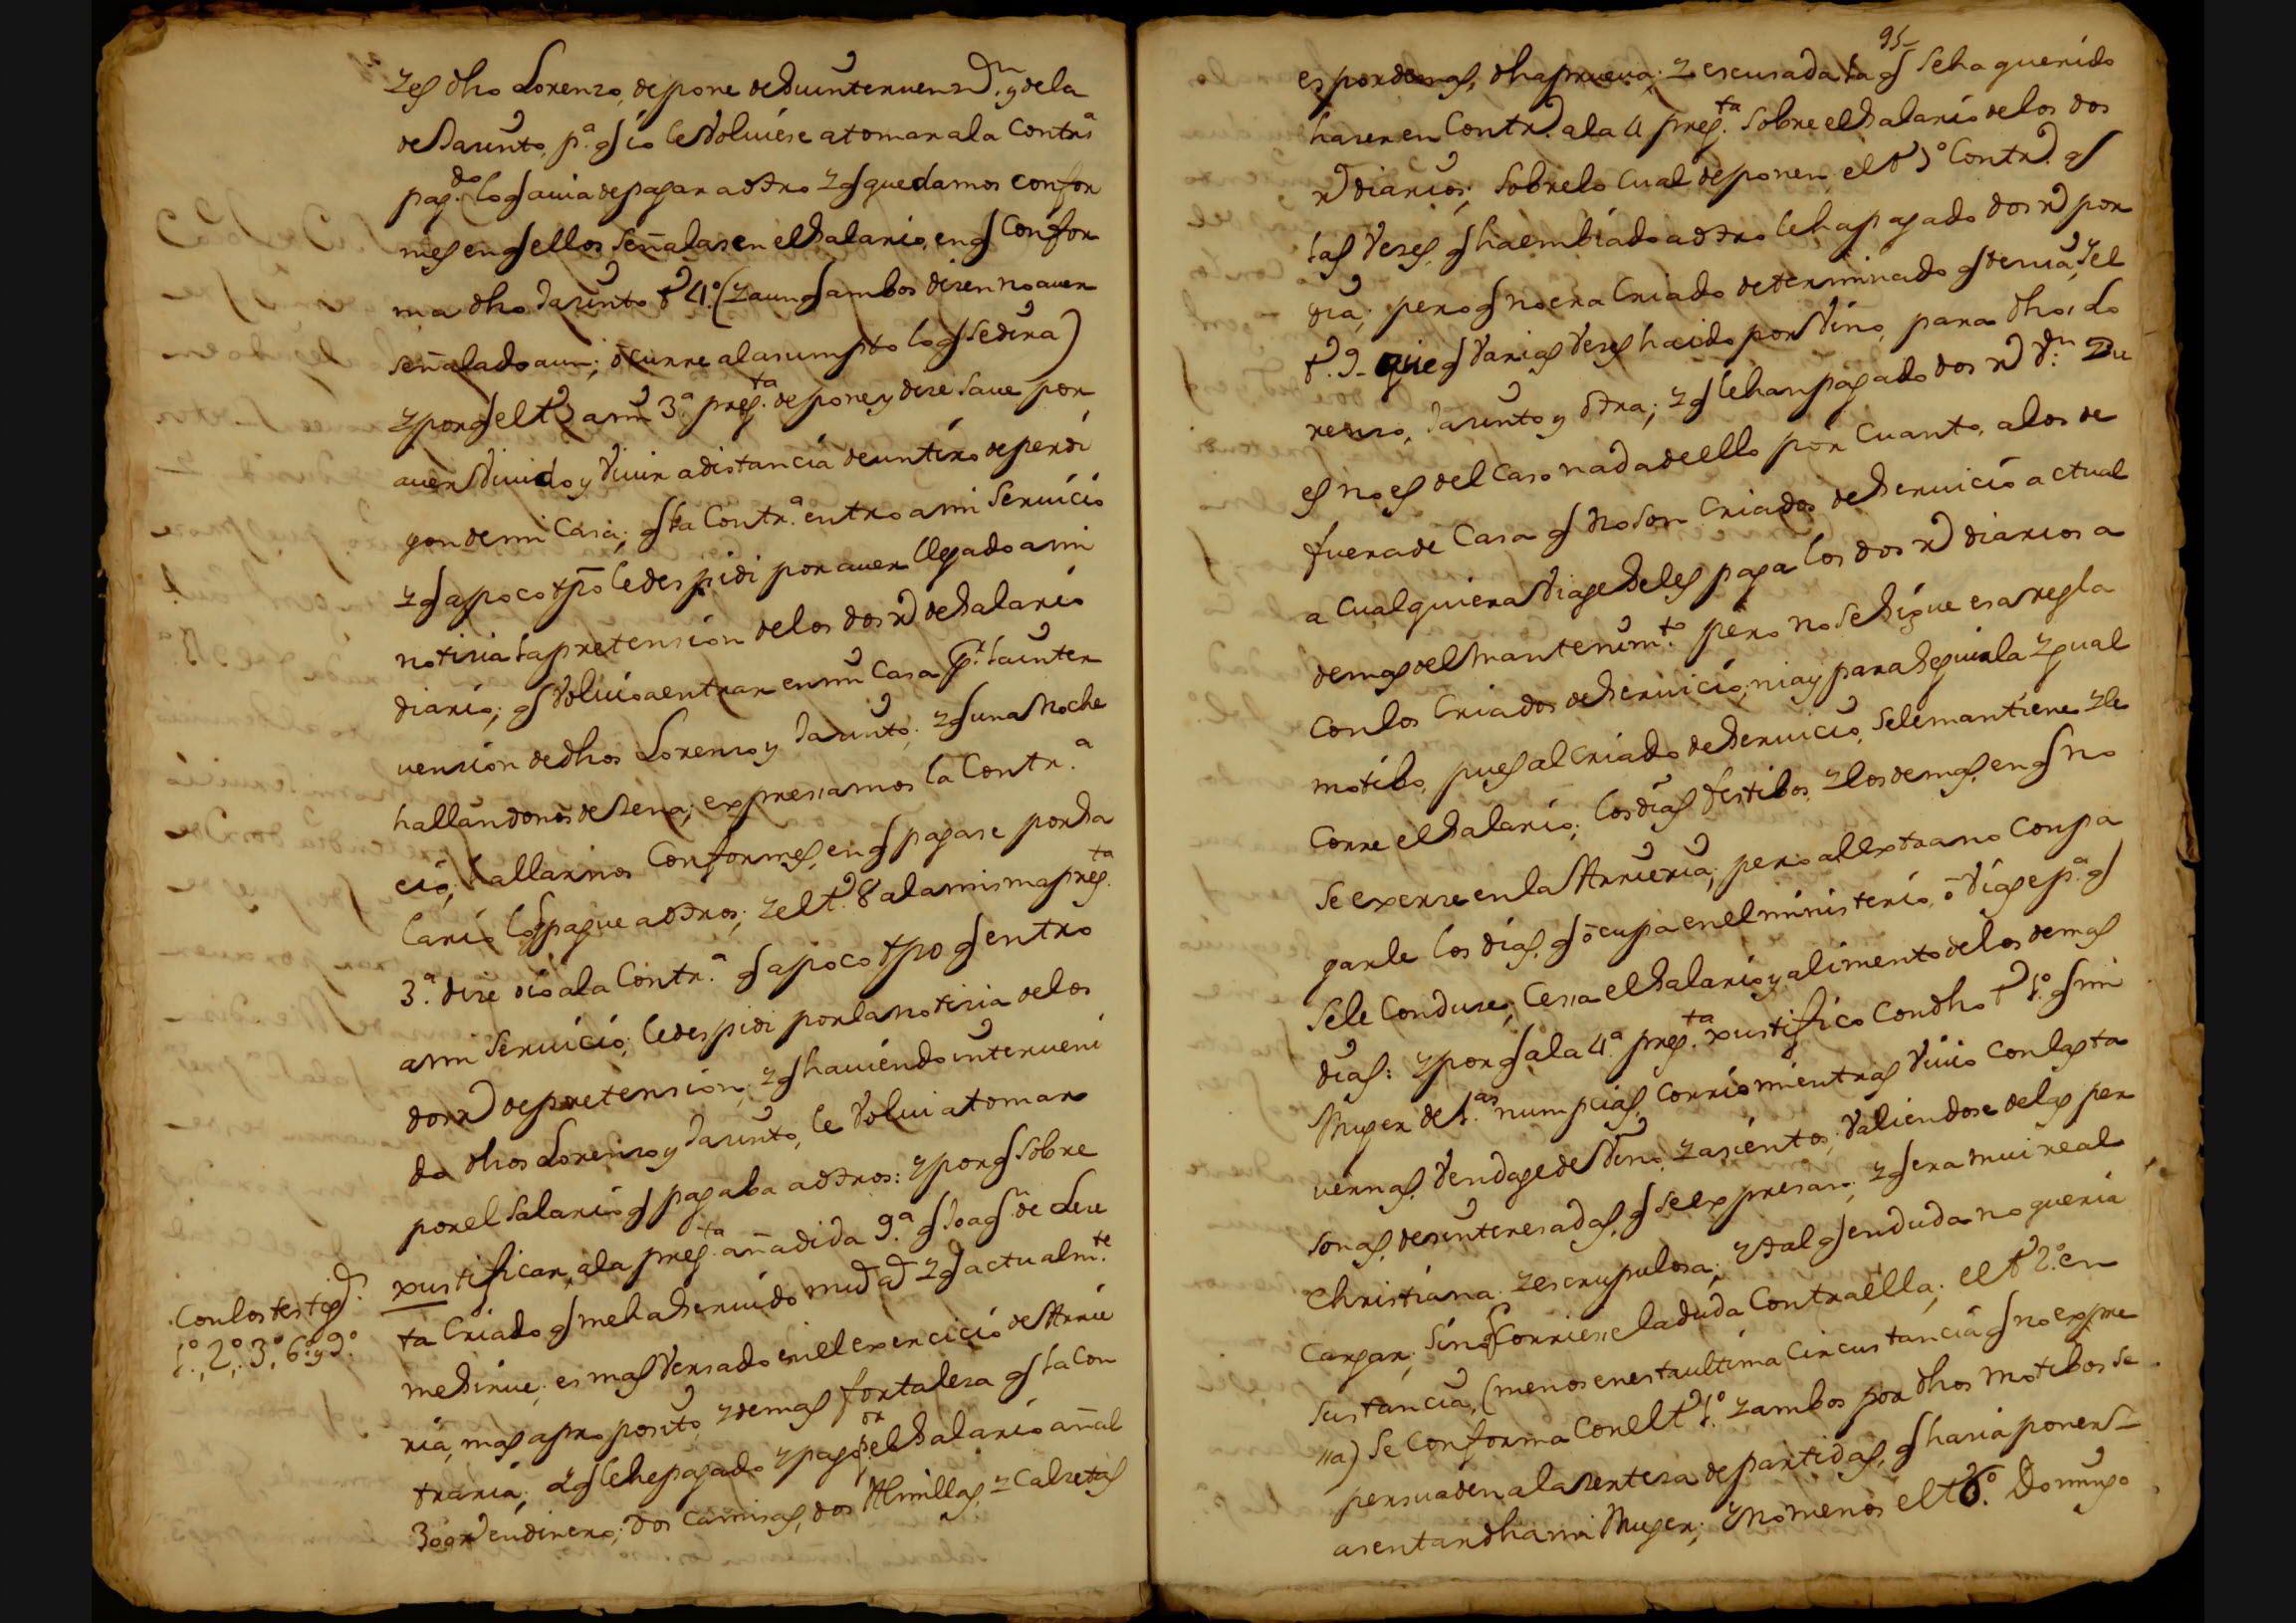 Zes dho Lorenzo, depone de su intervenzn. y dela
de Jazinto, pa. q io le bolviese a tomar ala Contra
pagdo. lo q avia de pagar a otro Z q quedamos confor
mes en q ellos señalasen el salario, en q confor
ma dho Jazinto to 4o. (Z aun q ambos dizen no aver
señalado aun; ocurre al asumpto lo q se dira)
Z por q el to 3 a mi 3a pregta. depone y dize save por
aver vivido y vivir a distancia de un tiro de perdi
gon de mi Casa; q la Contra. entro a mi servicio
Z q a poco tpo le despidi por aver llegado a mi
notizia la pretension de los dos rs de salario
diario; q volvio a entrar en mi Casa pr. la inter
venzion de dhos Lorenzo y Jazinto; Z q una noche
hallandonos de zena; expresamos la Contra.
cio; hallarnos conformes, en q pagase por sa
lario lo q pague a otros; Z el to. 8 a la misma pregta
3a. dize dio a la Contra. q a poco tpo q entro
a mi servicio; le despidi por la notizia de los
dos rs de pretension; Z q haviendo interveni
do dhos Lorenzo y Jazinto, le volvi a tomar
por el salario q pagaba a otros: Z por q sobre
Con los testigs. 1o., 2o., 3o, 6o. y 9o.
xustificar, a la pregta. añadida 9a. q Joaqn de Leze
ta Criado q me ha servido mu ad Z q actualmte.
me sirve; es mas versado en el exercicio de Arrie
ria, mas a proposito, Z de mas fortaleza q la Con
traria; Z q le he pagado Z pago por el salario añal
300 rs en dinero; dos camisas, dos Almillas, Z Calzetas
95
es por demas, dha prueva; Z escusada la q se ha querido
hazer en Contro. a la 4 pregta. sobre el salario de los dos
rs diarios; sobre lo cual deponen, el to 1o Contro. q
las vezes, q ha embiado a otro le ha pagado dos rs por
dia; pero q no era Criado determinado q tenia; Z el
to. 9. que q varias vezes ha ido por vino, para dhos Lo
renzo, Jazinto y otra; Z q le han pagado dos rs
es no es del caso nada de ello por Cuanto, a los de
fuera de Casa q no son Criados de servicio actual
a cualquiera viage se les paga los dos rs diarios a
demas del mantenimto. pero no se sigue esa regla
con los Criados de servicio; ni ay para seguirla Z gual
motibo, pues al criado de servicio, se le mantiene Z le
Corre el salario; los dias festibos, Z los demas, en q no
se exerze en la Arrieria; pero al extraño con pa
garle los dias, q ocupa en el ministerio, o viage pa. q
se le conduze; cesa el salario y alimento de los demas
dias: Z por q a la 4a. pregta. xustifico con dho to 1o. q mi
Muger de 1as. numpcias, corrio mientras vivio con las ta
vernas, vendage de vino, Z asientos, valiendose de las per
sonas, desinteresadas, q se expresan; Z q era mui real
Christiana, Z escrupulosa; Z tal q en duda no queria
Cargar, sino q corriese la duda contra ella; el to 2o. en
sustancia, (menos en esta ultima circunstancia q no expre
sa) se conforma con el to 1o. Z ambos por dhos motibos se
persuaden a la zerteza de partidas, q haria poner Z
asentar dha mi Muger; Z no menos el to 6o. Domingo